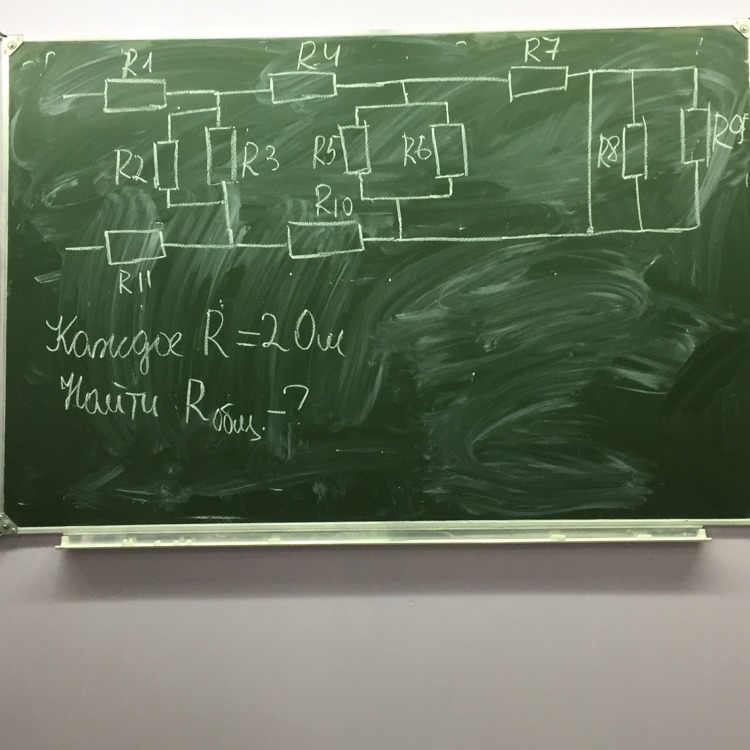 R1 R4 R7
R2 R3 R5 R6 R8 R9
R10
R11
Каждое R = 2 Ом
Найти Rобщ. - ?